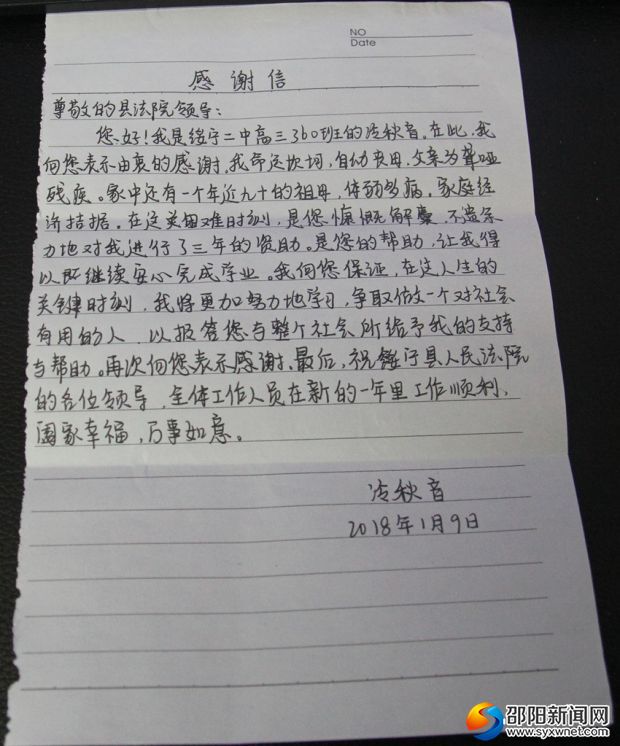 NO
Date
感谢信
尊敬的县法院领导：
您好！我是绥宁二中高三360班的冷秋音。在此，我
向您表示由衷的感谢，我命运坎坷，自幼丧母，父亲为聋哑
残疾。家中还有一个年近九十的祖母，体弱多病，家庭经
济拮据。在这关困难时刻，是您慷慨解囊，不遗余
力地对我进行了三年的资助。是您的帮助，让我得
以既继续安心完成学业。我向您保证，在这人生的
关键时刻，我将更加努力地学习，争取做一个对社会
有用的人，以报答您与整个社会所给予我的支持
与帮助。再次向您表示感谢。最后，祝绥宁县人民法院
的各位领导，全体工作人员在新的一年里工作顺利，
阖家幸福，万事如意。
冷秋音
2018年1月9日
邵阳新闻网
www.syxwnet.com